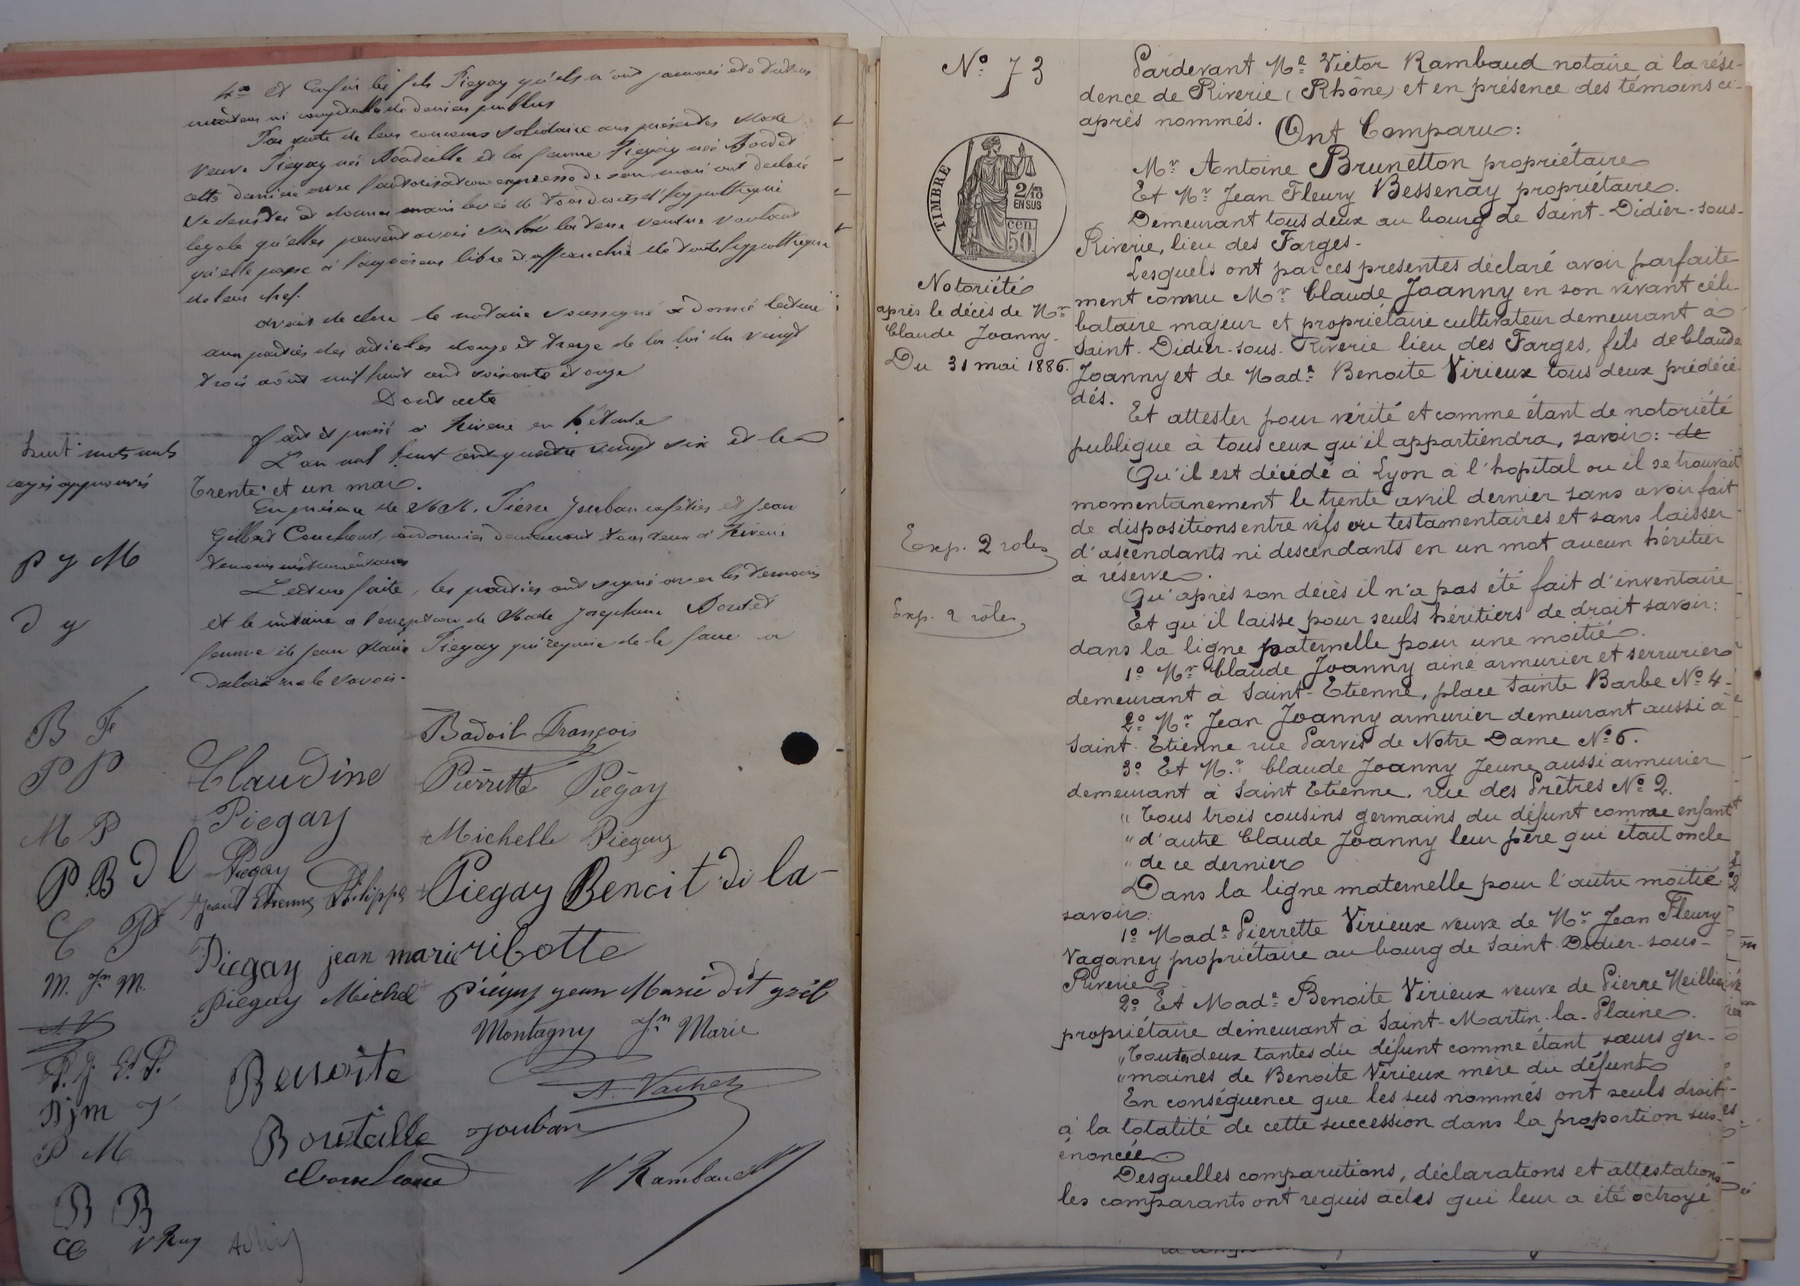 4º et Enfin les fils Piegay qu'ils n'ont jamais été tuteurs
ni comptable de deniers publics
Par suite de leur concours solidaire aux présentes Made
Veuve Piegay née Bouteille et la femme Piegay née
cette dernière avec l'autorisation expresse de son mari ont déclaré
se désister et donner main levée de tous droits d'hypothèque
légale qu'elles peuvent avoir sur la terre vendue voulant
qu'elle passe à l'acquéreur libre et affranchie de toute hypothèque
de leur chef.
Avant de clore le notaire soussigné a donné lecture
aux parties des articles douze et treize de la loi du vingt
trois août mil huit cent soixante et onze
Dont acte
fait et passé à Riverie en l'étude
L'an mil huit cent quatre vingt six et le
trente et un mai.
En présence de MM. Pierre Jouban cafetier et Jean
Couchoud, cordonnier demeurant tous deux à Riverie
témoins instrumentaires
Lecture faite, les parties ont signé avec les témoins
et le notaire à l'exception de Made Josephine
femme de Jean Marie Piegay qui requise de le faire a
déclaré ne le savoir.
huit mots
rayés approuvés
P y M
D y
B F
P P
M P
P B D l
C P
M. Jn M.
A V
P. J. Et. P.
P j m
P M
B B
CC V Ram
Badoil François
Claudine Pierrette Piégay
Piegay Michelle Piegay
Piegay
Jean Etienne Philippe Piegay Benoit di la-
Piegay jean marie ribotte
Piegay Michel piégay jean Marie dit
Montagny Jn Marie
Benoite A. Vachez
Bouteille Jouban
Couchoud V Rambaud
Nº 73
TIMBRE
2/10
EN SUS
50 cen.
Notoriété
après le décès de Mr
Claude Joanny.
Du 31 mai 1886.
Exp. 2 roles
Exp. 2 rôles
Pardevant Me Victor Rambaud notaire à la rési-
dence de Riverie (Rhône) et en présence des témoins ci-
après nommés.
Ont Comparu:
Mr Antoine Brunetton propriétaire
Et Mr Jean Fleury Bessenay propriétaire.
Demeurant tous deux au bourg de Saint-Didier-sous-
Riverie, lieu des Farges.
Lesquels ont par ces présentes déclaré avoir parfaite
ment connu Mr Claude Joanny en son vivant céli-
bataire majeur et propriétaire cultivateur demeurant à
Saint-Didier-sous-Riverie lieu des Farges, fils de Claude
Joanny et de Made Benoite Virieux tous deux prédécé
dés.
Et attester pour vérité et comme étant de notoriété
publique à tous ceux qu'il appartiendra, savoir: de
Qu'il est décédé à Lyon à l'hopital ou il se trouvait
momentanement le trente avril dernier sans avoir fait
de dispositions entre vifs ou testamentaires et sans laisser
d'ascendants ni descendants en un mot aucun héritier
à réserve.
Qu'après son décès il n'a pas été fait d'inventaire
Et qu'il laisse pour seuls héritiers de droit savoir:
dans la ligne paternelle pour une moitié.
1º Mr Claude Joanny ainé armurier et serrurier
demeurant à Saint-Etienne, place Sainte Barbe Nº 4-
2º Mr Jean Joanny armurier demeurant aussi à
Saint-Etienne rue Parvis de Notre Dame Nº 6.
3º Et Mr Claude Joanny Jeune aussi armurier
demeurant à Saint Etienne, rue des Prêtres Nº 2.
" Tous trois cousins germains du défunt comme enfant
" d'autre Claude Joanny leur père qui était oncle
" de ce dernier
Dans la ligne maternelle pour l'autre moitié
savoir:
1º Made Pierrette Virieux veuve de Mr Jean Fleury
Vaganey propriétaire au bourg de Saint-Didier-sous-
Riverie
2º Et Made Benoite Virieux veuve de Pierre Meillier
propriétaire demeurant à Saint-Martin-la-Plaine.
" Toutes deux tantes du défunt comme étant sœurs ger-
" maines de Benoite Virieux mère du défunt
En conséquence que les sus nommés ont seuls droit
à la totalité de cette succession dans la proportion sus-
énoncée
Desquelles comparutions, déclarations et attestations
les comparants ont requis actes qui leur a été octroyé